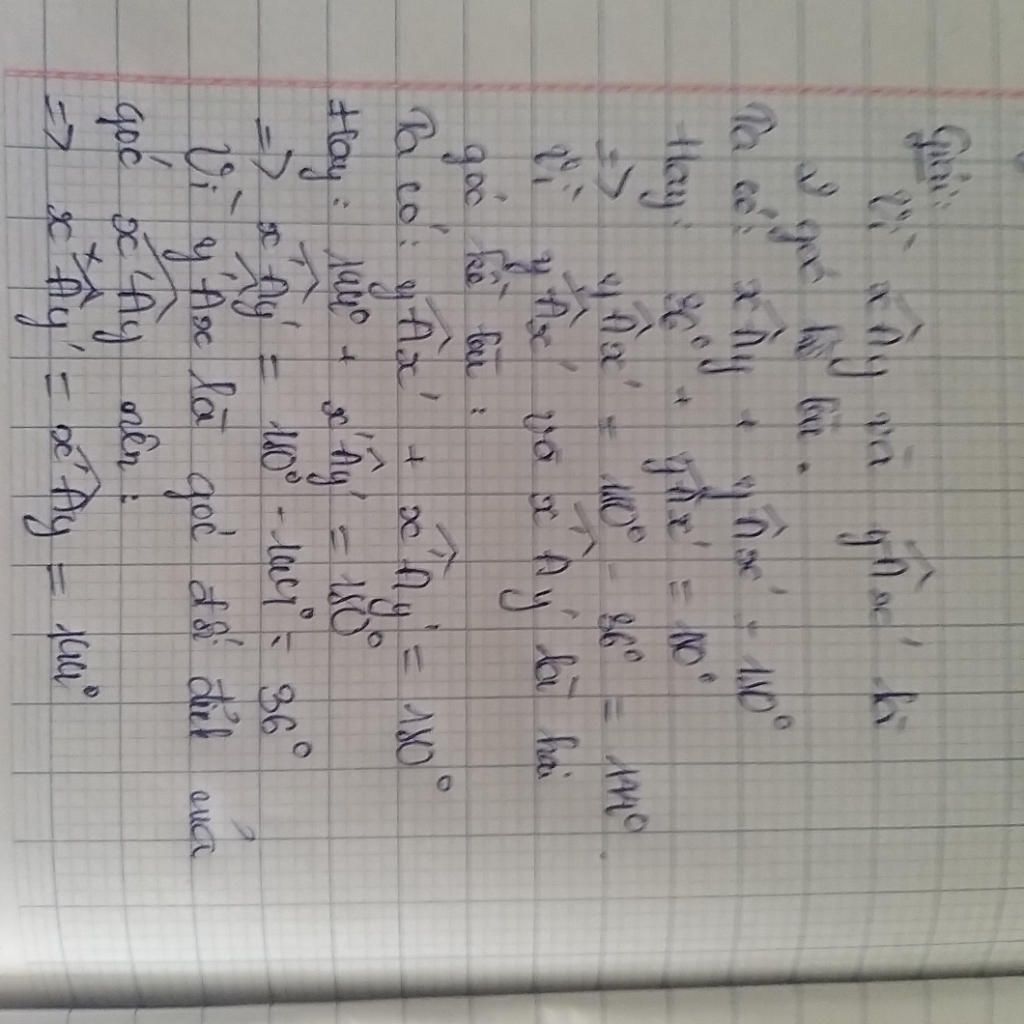 Giải:
Vì x̂Ay và yÂx' là
2 góc kề bù.
Ta có: x̂Ay + yÂx' = 180°
Hay: 36° + yÂx' = 180°
=> yÂx' = 180° - 36° = 144°.
Vì yÂx' và x'Ây' là hai
góc kề bù:
Ta có: yÂx' + x'Ây' = 180°
Hay: 144° + x'Ây' = 180°
=> x'Ây' = 180° - 144° = 36°
Vì y'Âx là góc đối đỉnh của
góc x'Ây nên:
=> xÂy' = x'Ây = 144°